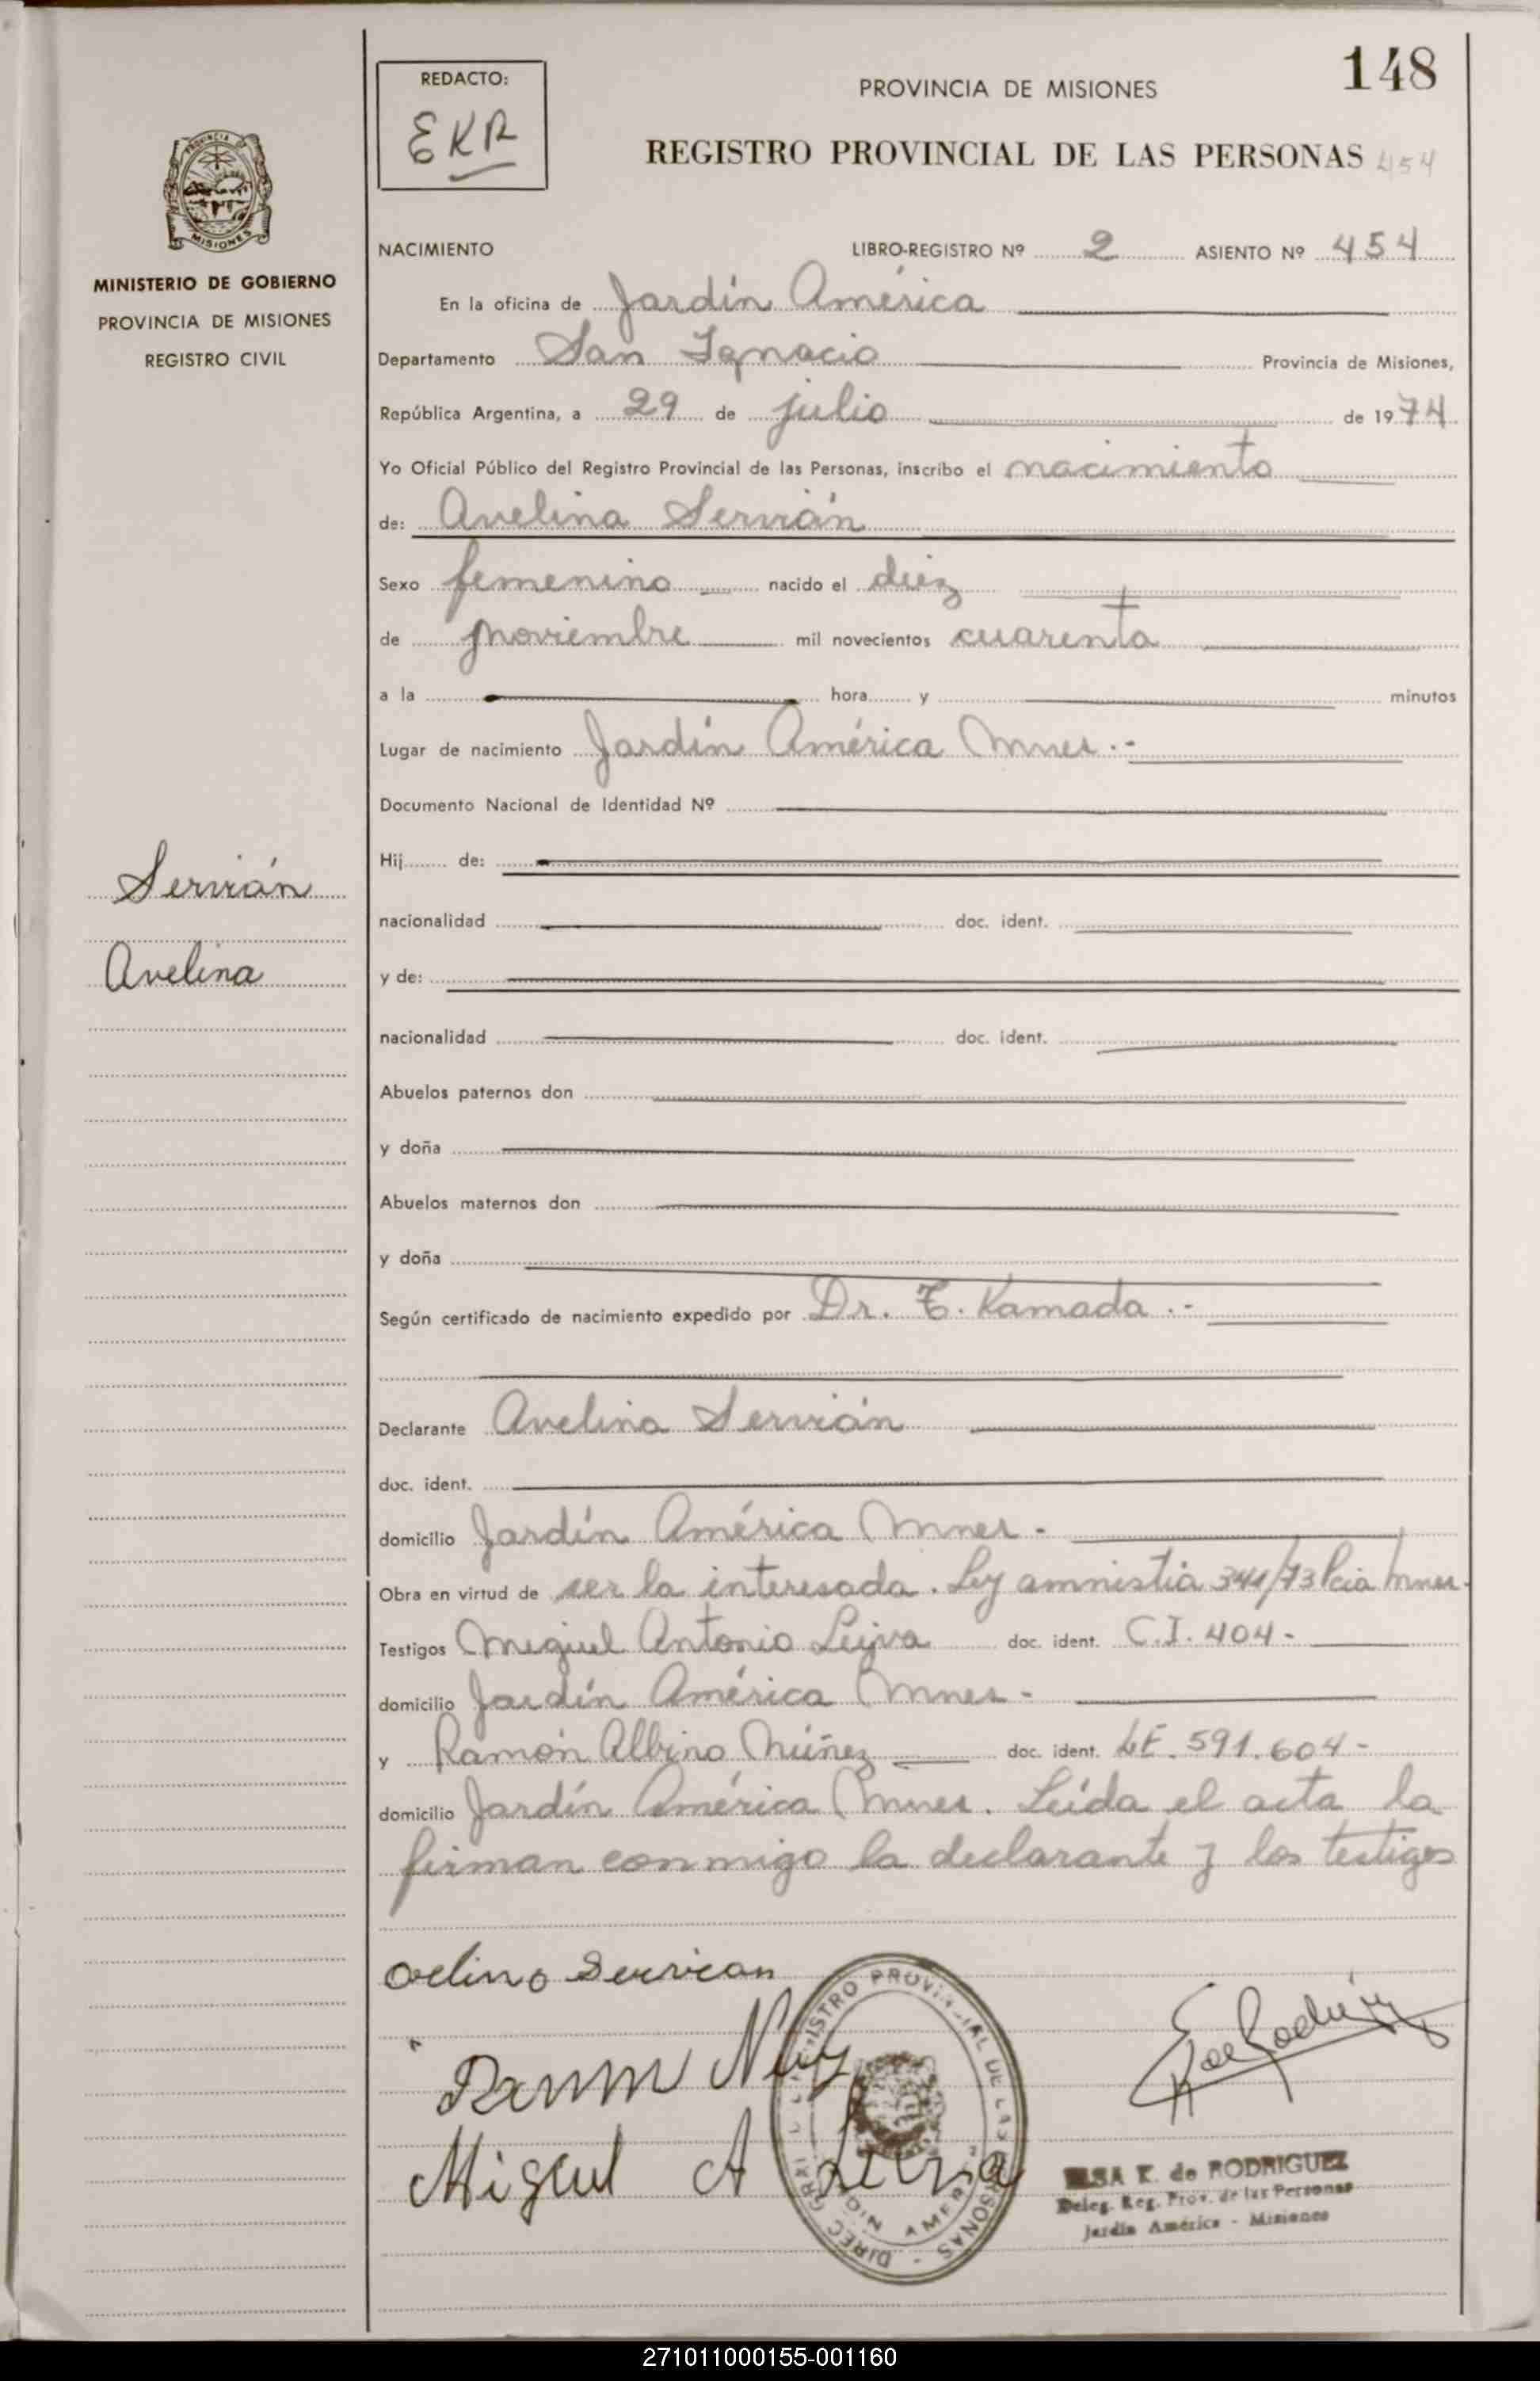 148
REDACTO:
EKR
PROVINCIA DE MISIONES
REGISTRO PROVINCIAL DE LAS PERSONAS 454
PROVINCIA
MISIONES
MINISTERIO DE GOBIERNO
PROVINCIA DE MISIONES
REGISTRO CIVIL
NACIMIENTO LIBRO-REGISTRO Nº 2 ASIENTO Nº 454
En la oficina de Jardín América
Departamento San Ignacio Provincia de Misiones,
República Argentina, a 29 de julio de 1974
Yo Oficial Público del Registro Provincial de las Personas, inscribo el nacimiento
de: Avelina Servián
Sexo femenino nacido el diez
de noviembre mil novecientos cuarenta
a la hora y minutos
Lugar de nacimiento Jardín América Mnes.-
Documento Nacional de Identidad Nº
Hij de:
Servián
nacionalidad doc. ident.
Avelina
y de:
nacionalidad doc. ident.
Abuelos paternos don
y doña
Abuelos maternos don
y doña
Según certificado de nacimiento expedido por Dr. T. Kamada.-
Declarante Avelina Servián
doc. ident.
domicilio Jardín América Mnes-
Obra en virtud de ser la interesada. Ley amnistia 341/73 Pcia Mnes.
Testigos Miguel Antonio Leiva doc. ident. C.I. 404-
domicilio Jardín América Mnes-
y Ramón Albino Núñez doc. ident. LE. 591.604-
domicilio Jardín América Mnes. Leída el acta la
firman conmigo la declarante y los testigos
Miguel A Leiva
DIREC. GRAL. REGISTRO PROVINCIAL DE LAS PERSONAS - JARDIN AMERICA
ELSA K. de RODRIGUEZ
Deleg. Reg. Prov. de las Personas
Jardín América - Misiones
271011000155-001160